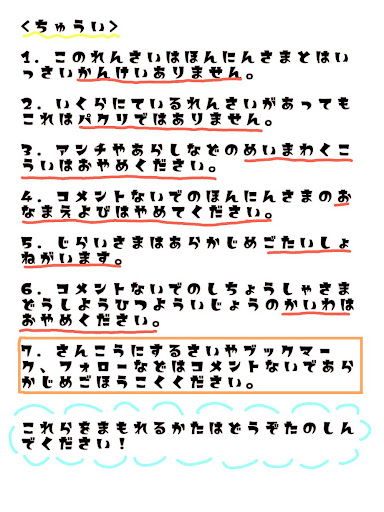 <ちゅうい>
1. このれんさいはほんにんさまとはい
っさいかんけいありません。
2. いくらにているれんさいがあっても
これはパクリではありません。
3. アンチやあらしなどのめいまわくこ
ういはおやめください。
4. コメントないでのほんにんさまのお
なまえよびはやめてください。
5. じらいさまはあらかじめごたいしょ
ねがいます。
6. コメントないでのしちょうしゃさま
どうしようひつよういじょうのかいわは
おやめください。
7. さんこうにするさいやブックマー
ク、フォローなどはコメントないであら
かじめごほうこくください。
これらをまもれるかたはどうぞたのしん
でください！